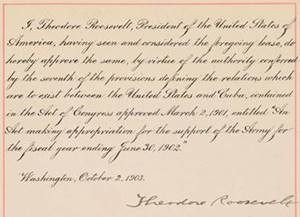 I, Theodore Roosevelt, President of the United States of
America, having seen and considered the foregoing lease, do
hereby approve the same, by virtue of the authority conferred
by the seventh of the provisions defining the relations which
are to exist between the United States and Cuba, contained
in the Act of Congress approved March 2, 1901, entitled "An
Act making appropriation for the support of the Army for
the fiscal year ending June 30, 1902."
Washington, October 2, 1903.
Theodore Roosevelt